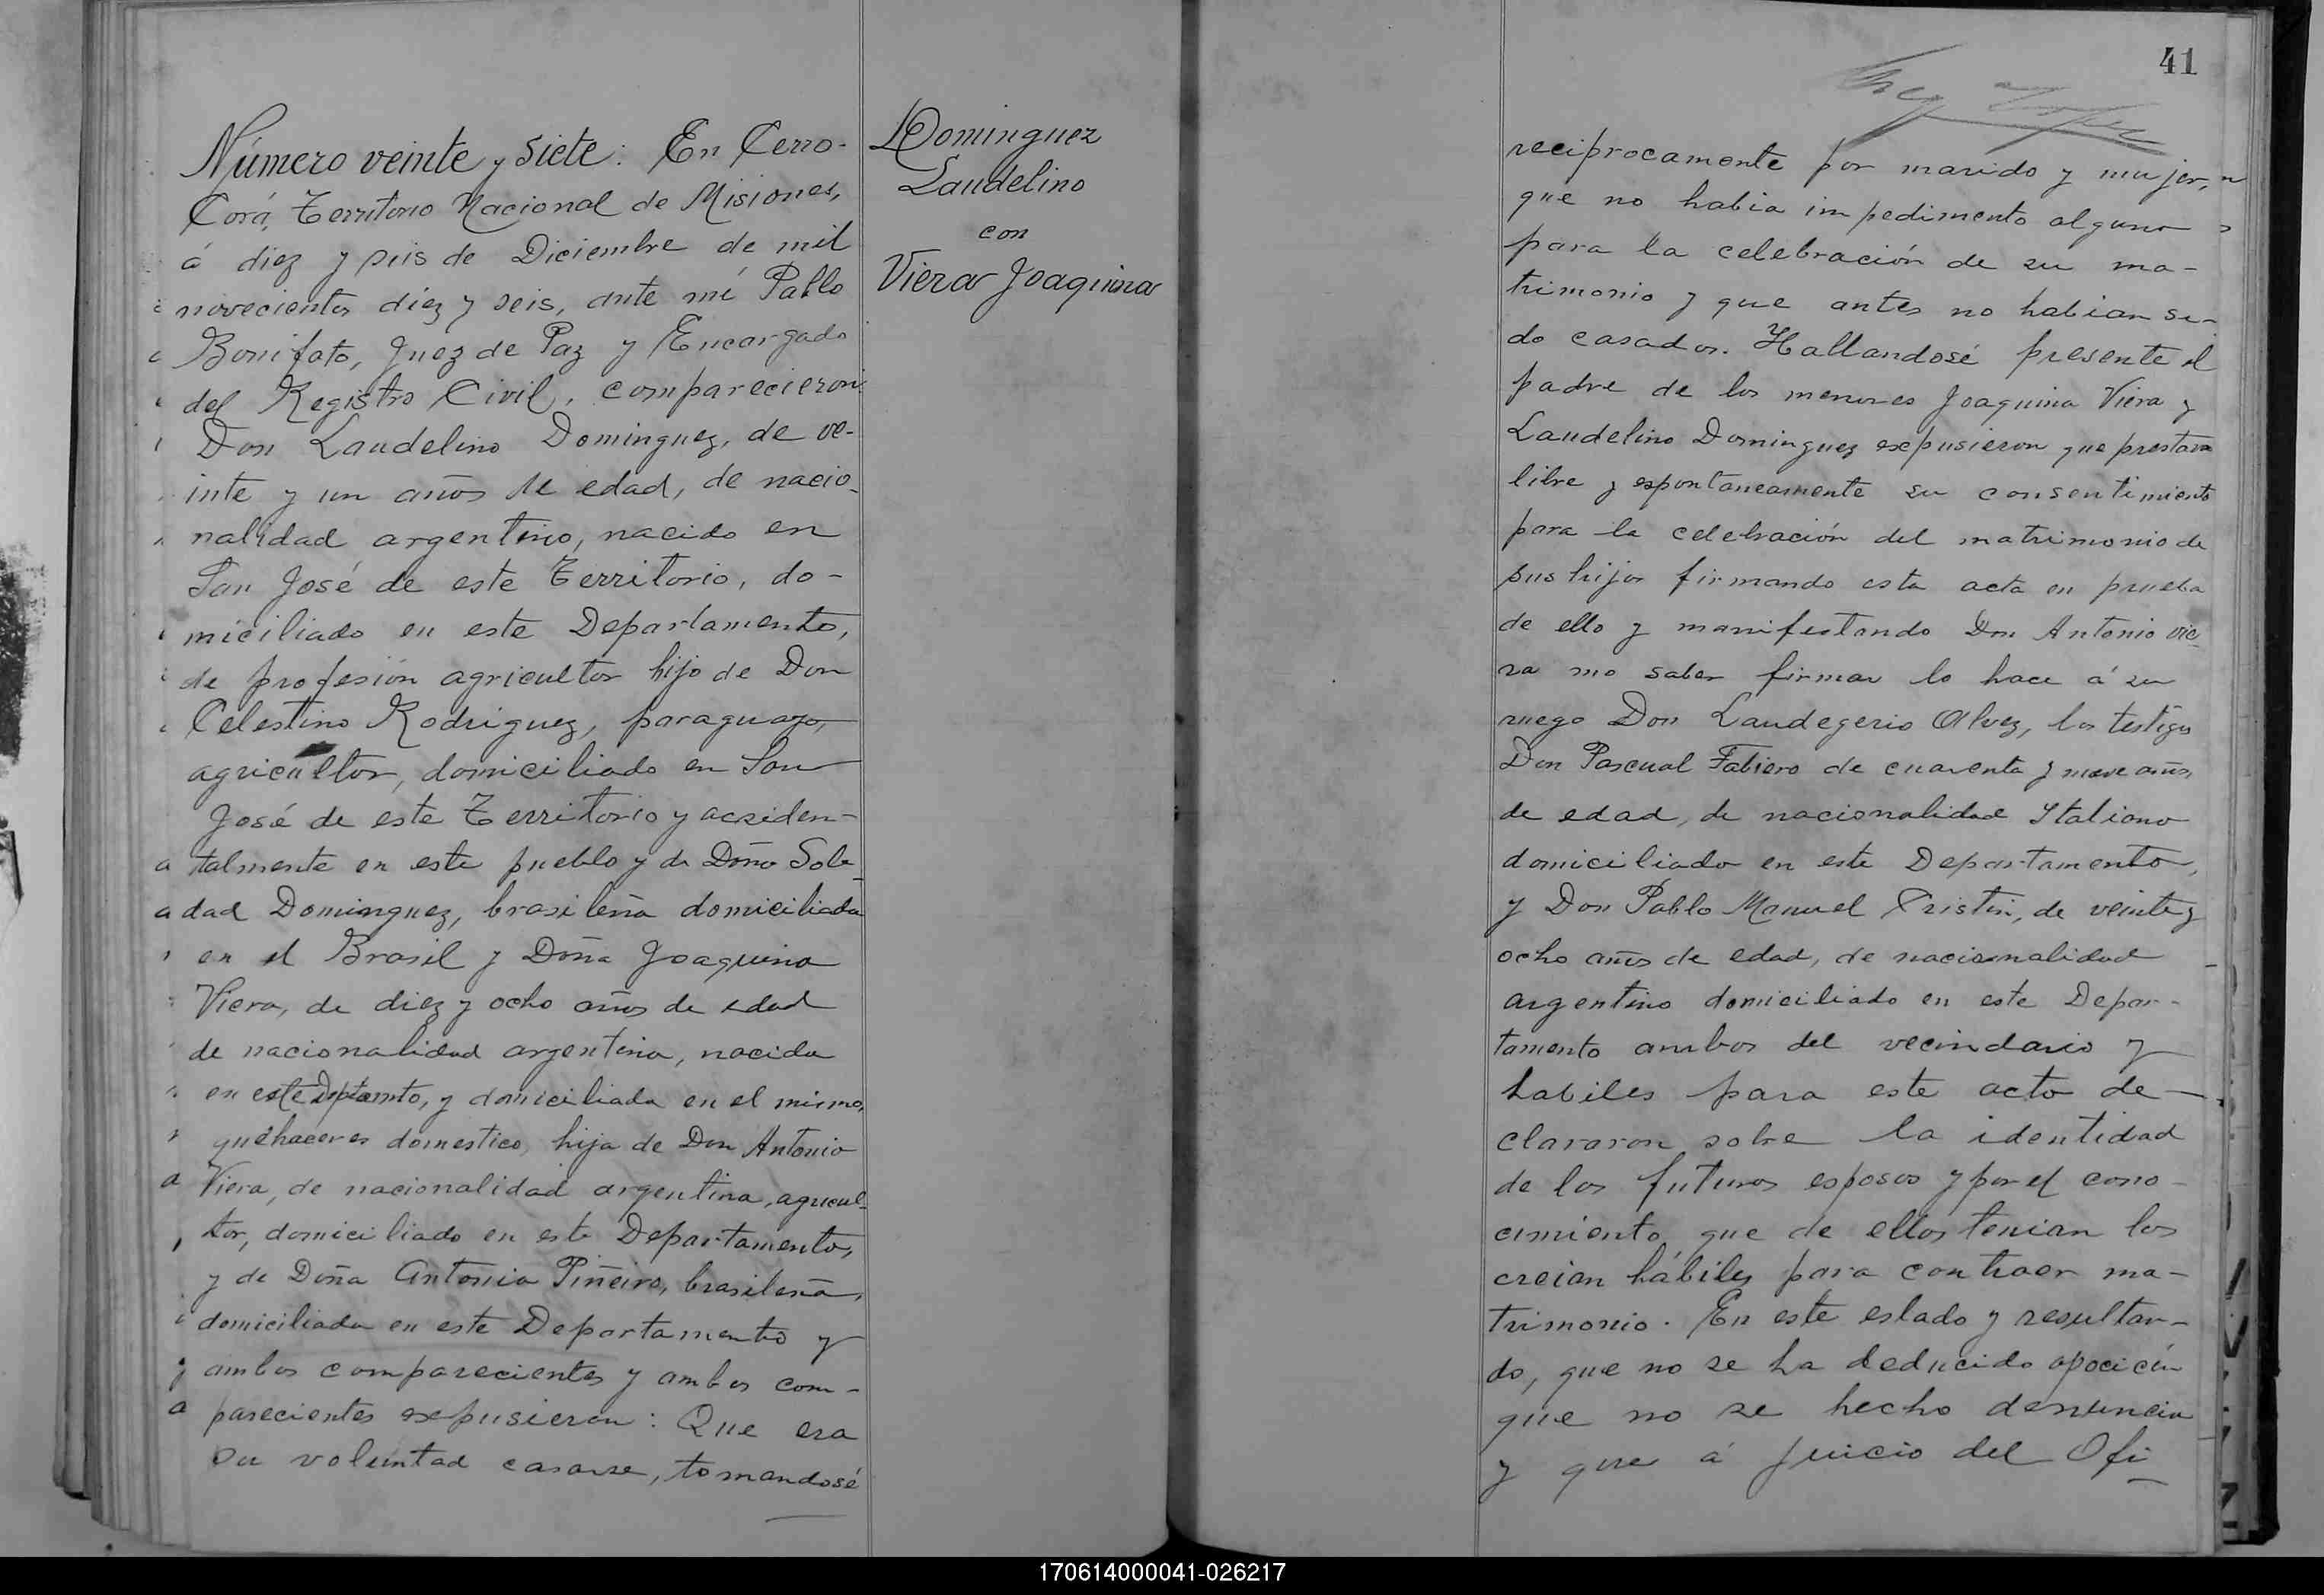 Número veinte y siete: En Cerro-
Corá, Territorio Nacional de Misiones,
á diez y seis de Diciembre de mil
novecientos diez y seis, ante mí Pablo
Bonifato, Juez de Paz y Encargado
del Registro Civil, comparecieron:
Don Laudelino Dominguez, de ve-
inte y un años de edad, de nacio-
nalidad argentino, nacido en
San José de este Territorio, do-
miciliado en este Departamento,
de profesión agricultor hijo de Don
Celestino Rodriguez, paraguayo,
agricultor, domiciliado en San
José de este Territorio y acsiden-
talmente en este pueblo y de Doña Sole-
dad Dominguez, brasileña domiciliada
en el Brasil y Doña Joaquina
Viera, de diez y ocho años de edad
de nacionalidad argentina, nacida
en este Deptamto, y domiciliada en el mismo,
quehaceres domestico, hija de Don Antonio
Viera, de nacionalidad argentina, agricul-
tor, domiciliado en este Departamento,
y de Doña Antonia Piñeiro, brasileña,
domiciliada en este Departamento y
ambos comparecientes y ambos com-
parecientes expusieron: Que era
su voluntad casarse, tomandosé
Dominguez
Laudelino
con
Viera Joaquina
41
reciprocamente por marido y mujer,
que no habia impedimento alguno
para la celebración de su ma-
trimonio y que antes no habian si-
do casados. Hallandosé presente el
padre de los menores Joaquina Viera y
Laudelino Dominguez expusieron que prestam
libre y espontaneamente su consentimiento
para la celebración del matrimonio de
sus hijos firmando esta acta en prueba
de ello y manifestando Don Antonio Vie-
ra no saber firmar lo hace á su
ruego Don Laudegerio Alvez, los testigos
Don Pascual Fabiero de cuarenta y nueve años
de edad, de nacionalidad Italiano
domiciliado en este Departamento,
y Don Pablo Manuel Cristin, de veinte y
ocho años de edad, de nacionalidad
argentino domiciliado en este Depar-
tamento ambos del vecindario y
habiles para este acto de-
clararon sobre la identidad
de los futuros esposos y por el cono-
cimiento que de ellos tenian los
creian hábiles para contraer ma-
trimonio. En este estado y resultan-
do, que no se ha deducido oposición
que no se hecho denuncia
y que á juicio del Ofi-
170614000041-026217